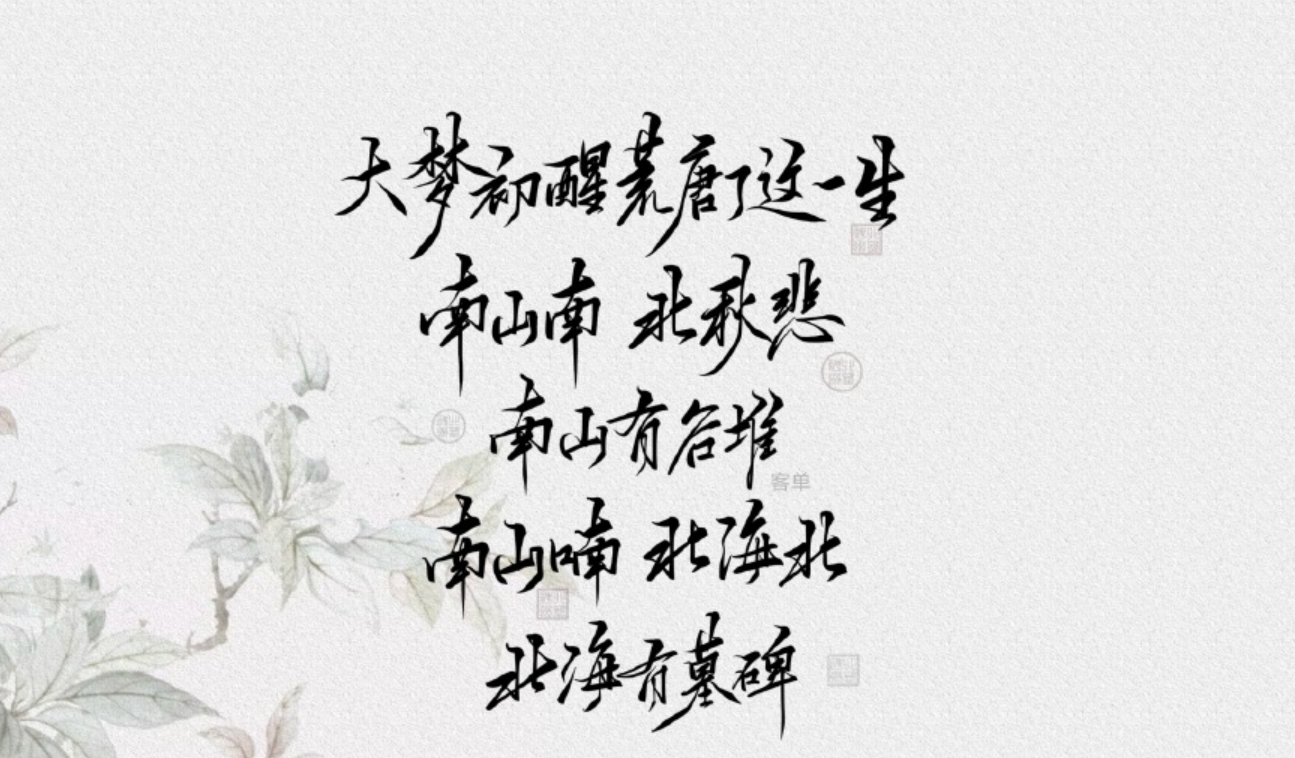 大梦初醒荒唐了这一生
南山南 北秋悲
南山有谷堆
客单
南山喃 北海北
北海有墓碑